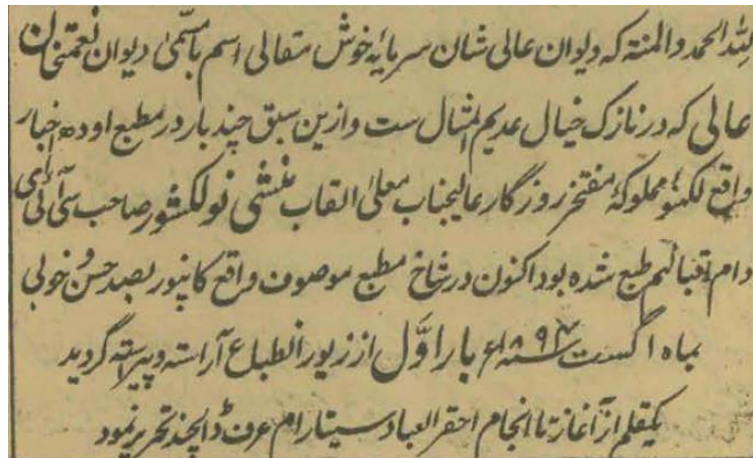 للّٰہ الحمد والمنتہ کہ دیوان عالی شان سرمایۂ خوش مقالی اسم بامسمّیٰ دیوان نعمتخان
عالی کہ در نازک خیال عدیم المثال ست و ازین سبق چند بار در مطبع اودھ اخبار
واقع لکھنؤ مملوکۂ مفتخر روزگار عالیجناب معلیٰ القاب منشی نولکشور صاحب سی آئی ای
دام اقبالہم طبع شدہ بود اکنون در شاخ مطبع موصوف واقع کانپور بصد حسن و خوبی
بماہ اگست سنہ ۱۸۹۴ء بار اوّل از زیور انطباع آراستہ و پیراستہ گردید
یکقلم از آغاز تا انجام احقر العباد سیتارام عرف ڈالچند تحریر نمود